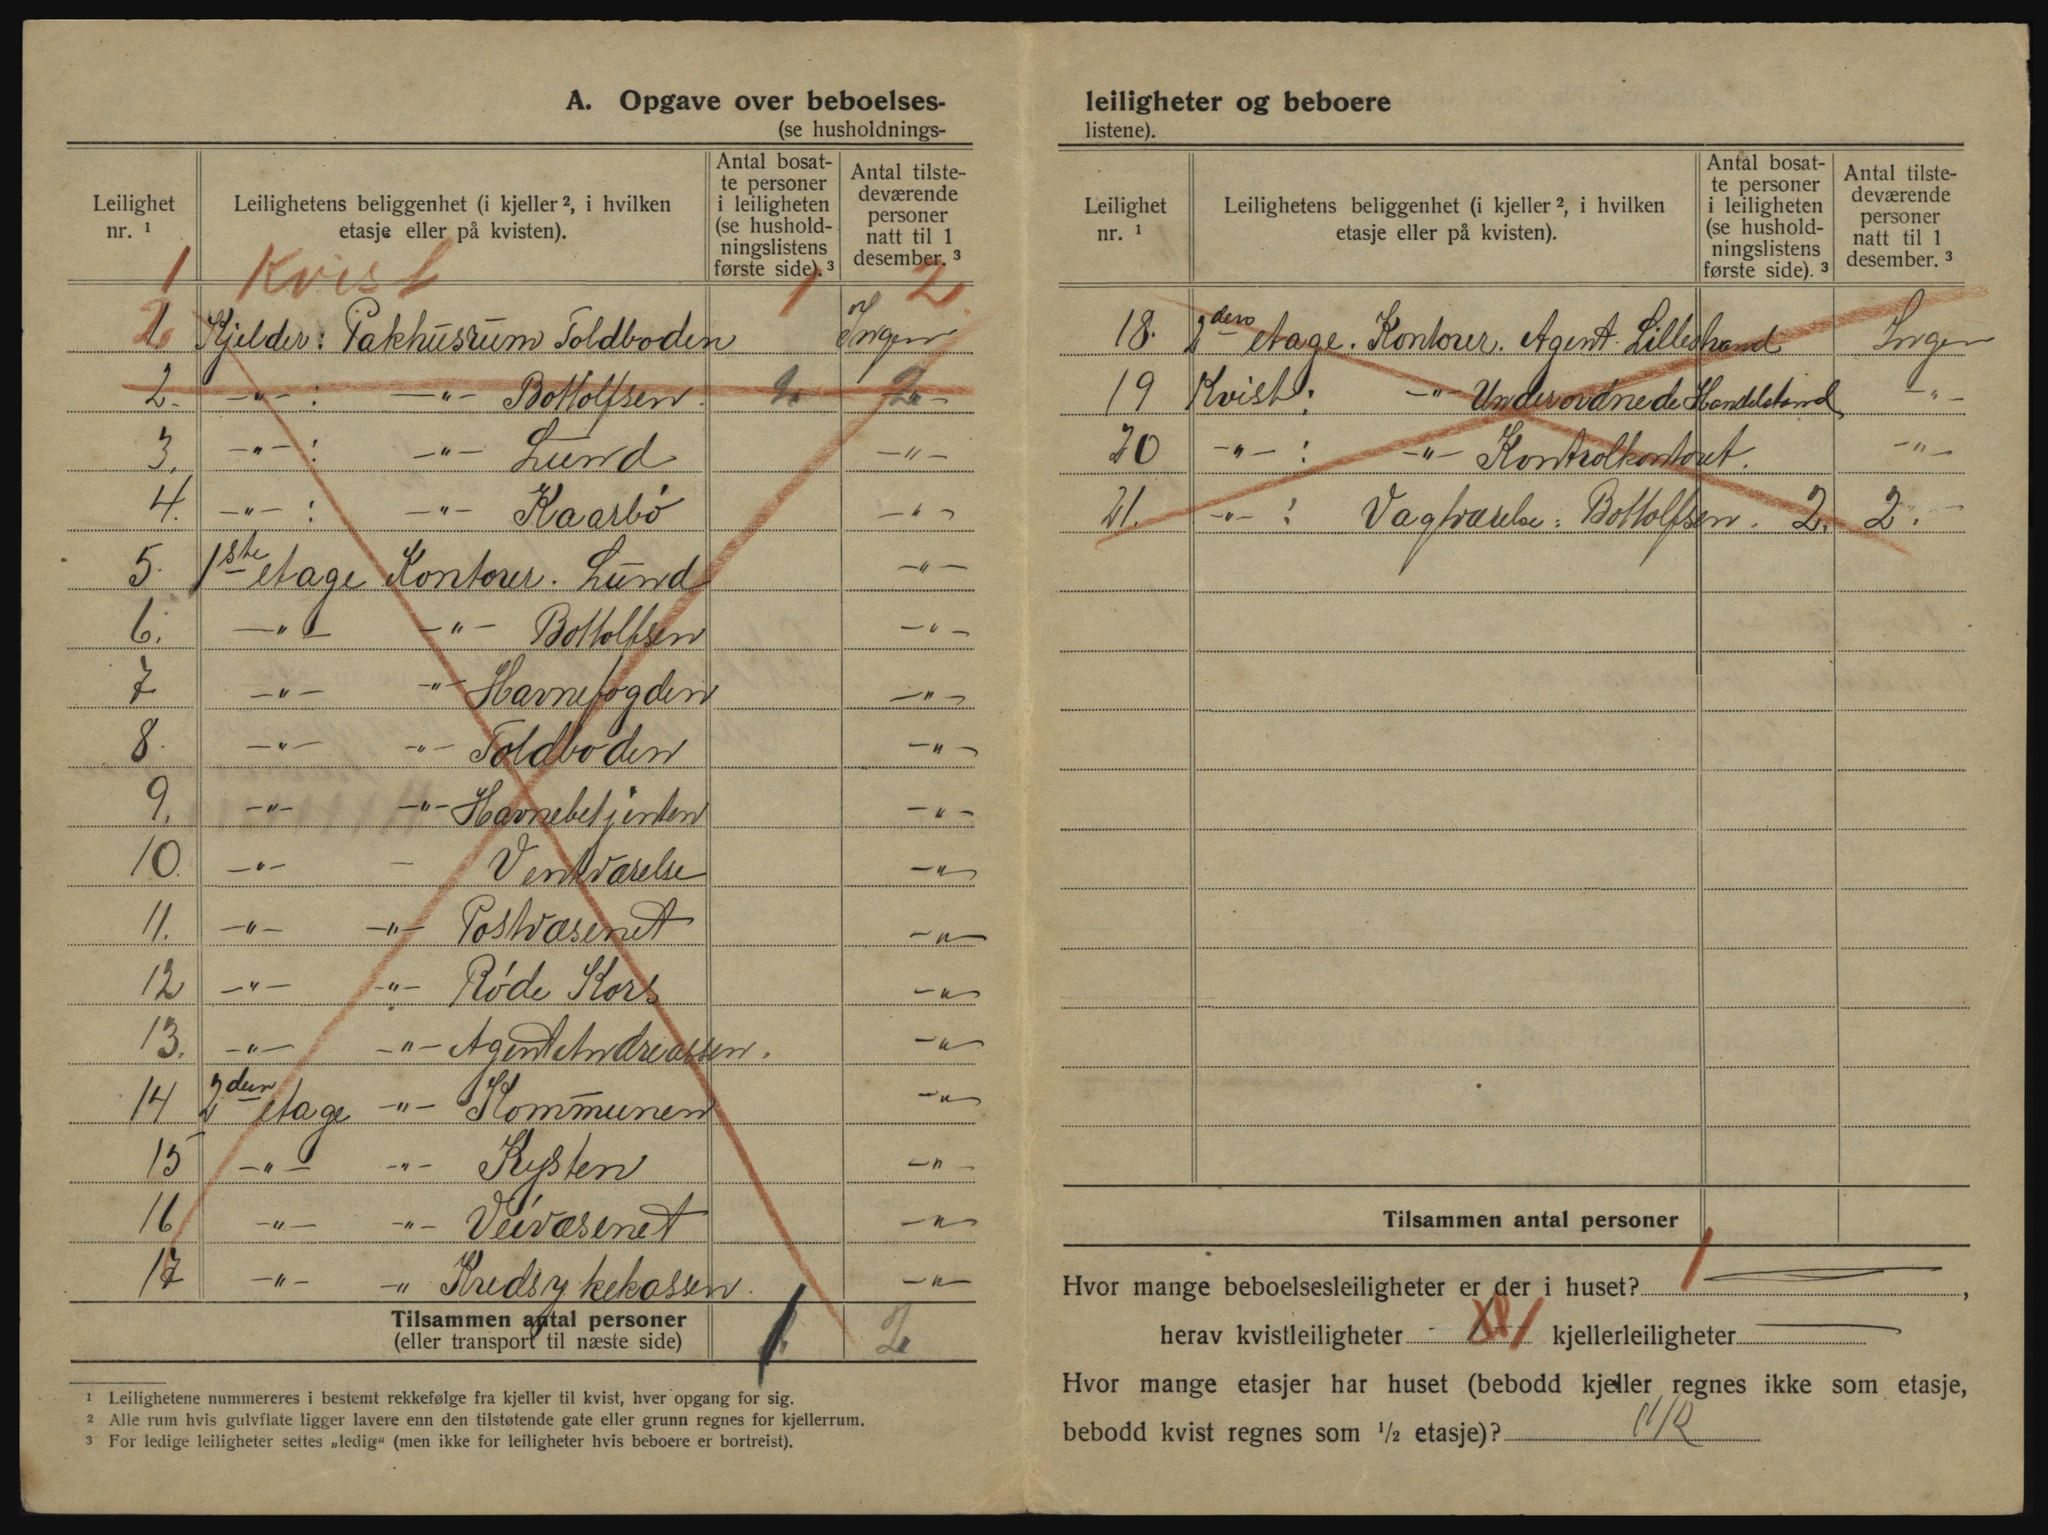 A. Opgave over beboelses-
(se husholdnings-
Leilighet nr. ¹ | Leilighetens beliggenhet (i kjeller ², i hvilken etasje eller på kvisten). | Antal bosatte personer i leiligheten (se husholdningslistens første side). ³ | Antal tilstedeværende personer natt til 1 desember. ³
1 Kvist 1 2
1. Kjelder: Pakhusrum Toldboden Ingen
2. -"- : -"- Bottolfsen. 2 2
3. -"- : -"- Lund -"-
4. -"- : -"- Kaarbó -"-
5. 1ste etage Kontorer. Lund -"-
6. -"- -"- Bottolfsen -"-
7 -"- -"- Havnefogden -"-
8. -"- -"- Toldboden -"-
9. -"- -"- Havnebetjenten -"-
10. -"- - Venteværelse -"-
11. -"- -"- Postvæsenet -"-
12 -"- -"- Róde Kors -"-
13. -"- -"- Agent Andreassen. -"-
14 2den etage -"- Kommunen -"-
15 -"- -"- Kysten -"-
16 -"- -"- Veivæsenet -"-
17 -"- " Kredsykekassen. -"-
Tilsammen antal personer
(eller transport til næste side) 1 2
¹ Leilighetene nummereres i bestemt rekkefølge fra kjeller til kvist, hver opgang for sig.
² Alle rum hvis gulvflate ligger lavere enn den tilstøtende gate eller grunn regnes for kjellerrum.
³ For ledige leiligheter settes „ledig“ (men ikke for leiligheter hvis beboere er bortreist).
leiligheter og beboere
listene).
Leilighet nr. ¹ | Leilighetens beliggenhet (i kjeller ², i hvilken etasje eller på kvisten). | Antal bosatte personer i leiligheten (se husholdningslistens første side). ³ | Antal tilstedeværende personer natt til 1 desember. ³
18. 2den etage. Kontorer. Agent. Lillestrand Ingen
19 Kvist: -"- Underordnede Handelstand -"-
20 -"- : -"- Kontrolkontoret. -"-
21. -"- : Vagtværelse: Bottolfsen. 2. 2.
Tilsammen antal personer
Hvor mange beboelsesleiligheter er der i huset? 1,
herav kvistleiligheter 1 kjellerleiligheter
Hvor mange etasjer har huset (bebodd kjeller regnes ikke som etasje,
bebodd kvist regnes som ½ etasje)?